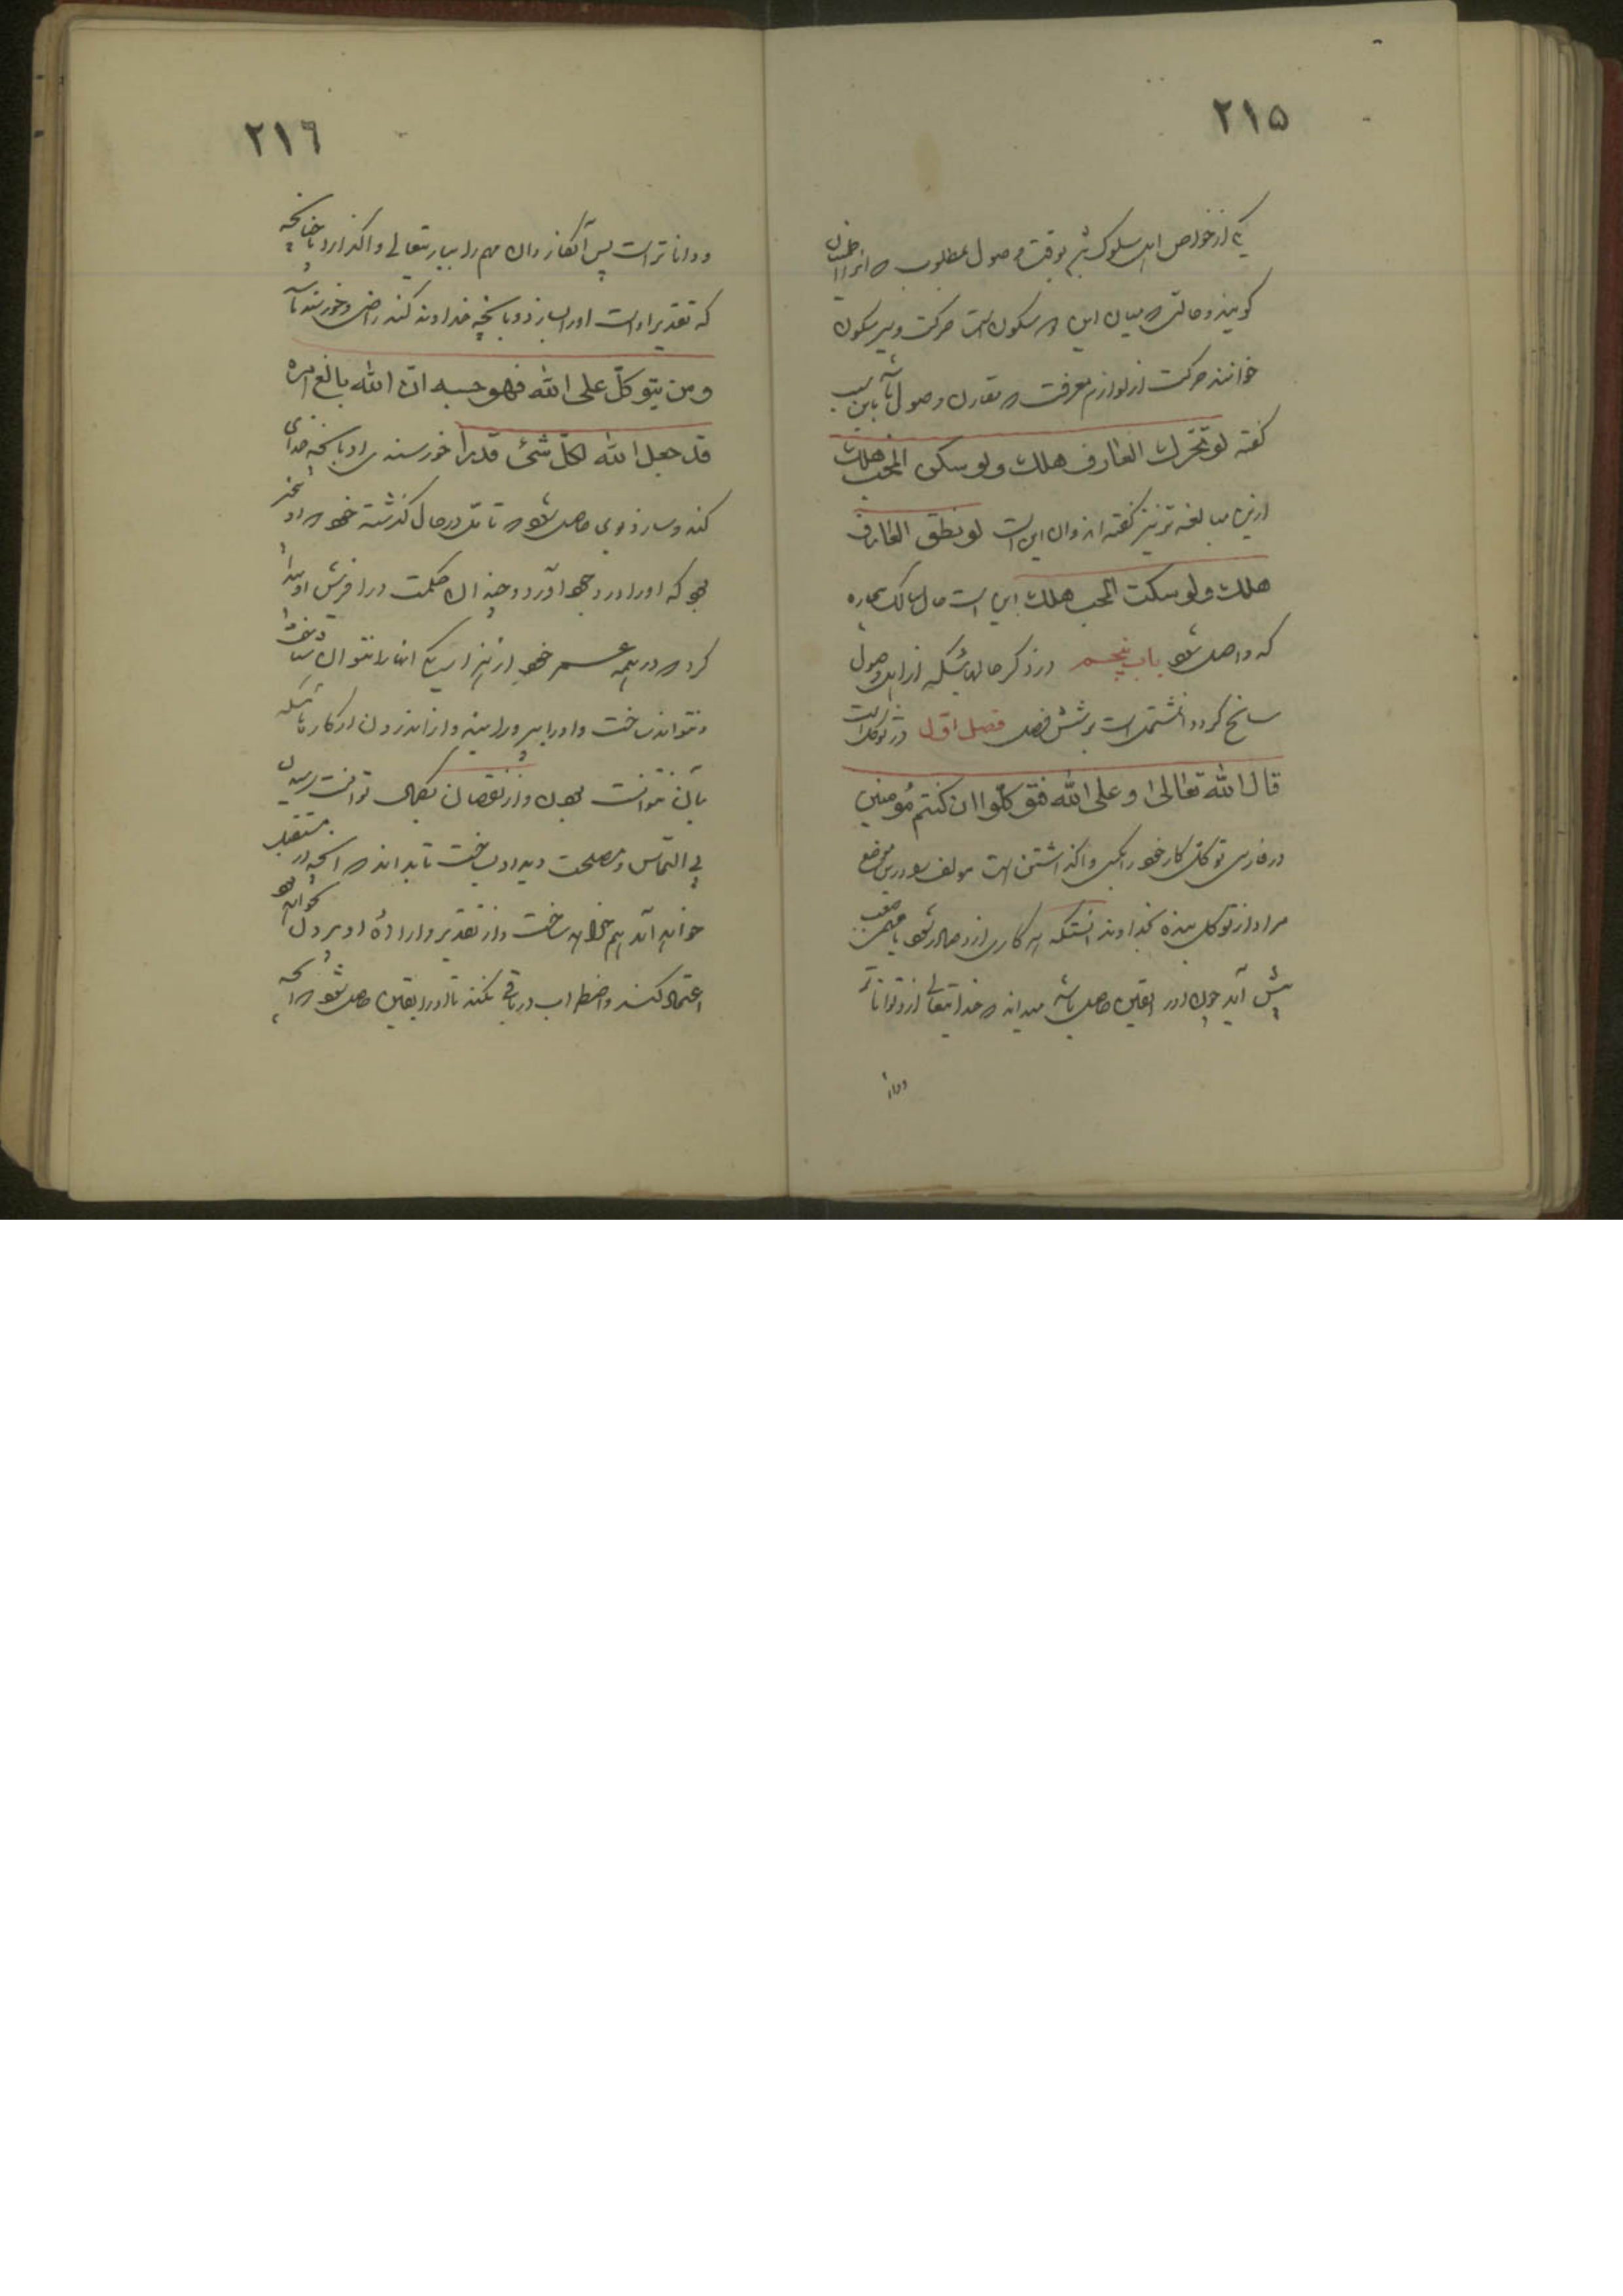 ۲۱۵
یکی از خواص اهل سلوک بهم بوقت وصول بمطلوب که آنرا اطمینان
گویند و حالتی که میان این دو سکون است حرکت و سیر سکون
خوانند حرکت از لوازم معرفت که مقارن وصول باشد باین سبب
گفته لو تحرّک العارف هلک و لو سکن المحب هلک
ازین مبالغه تر نیز گفته اند و آن این است لو نطق العارف
هلک و لو سکت المحب هلک این است حال سالک بیچاره
که واصل شود باب پنجم در ذکر حالهائیکه از اهل وصول
سانح گردد و مشتمل است بر شش فصل فصل اوّل در توکل است
قال الله تعالی و علی الله فتوکلّوا ان کنتم مُومنین
در فارسی توکل کار خود را بکسی واگذاشتن است مؤلف گوید درین موضع
مراد از توکل بنده بخداوند آنستکه هر کاری ازو صادر شود یا مهمی صعب
پیش آید چون او را یقین حاصل باشد میداند که خدایتعالی ازو تواناتر
و دانا
۲۱٦
و داناتر است پس آنکار و آن مهم را بباریتعالی واگذارد تا چنانچه
که تقدیر اوست او را بسازد و بآنچه خداوند کند راضی و خورسند باشد
و من یتوکلّ علی الله فهو حسبه انّ الله بالغ امره
قد جعل الله لکلّ شئ قدرا خورسندی او بآنچه خدای
کند و سازد بوی حاصل شود که تامّل در حال گذشته خود که او بیخبر
بود که او را در وجود آورد و چندان حکمت در آفرینش او پیدا
کرد که در همه عمر خود از هزار یکی آنها را نتوان شناخت
و نتواند ساخت و او را بپرورانید و از اندرون او کارهائیکه
بآن توانست بودن و از نقصان بکمال توانست رسیدن
بی التماس و مصلحت دید او بساخت تا بداند که آنچه در مستقبل
خواهد آمد هم خواهد ساخت و از تقدیر و ارادهٔ او بیرون نخواهد بود
اعتماد کند و اضطراب در باقی نکند تا او را یقین حاصل شود که آنچه